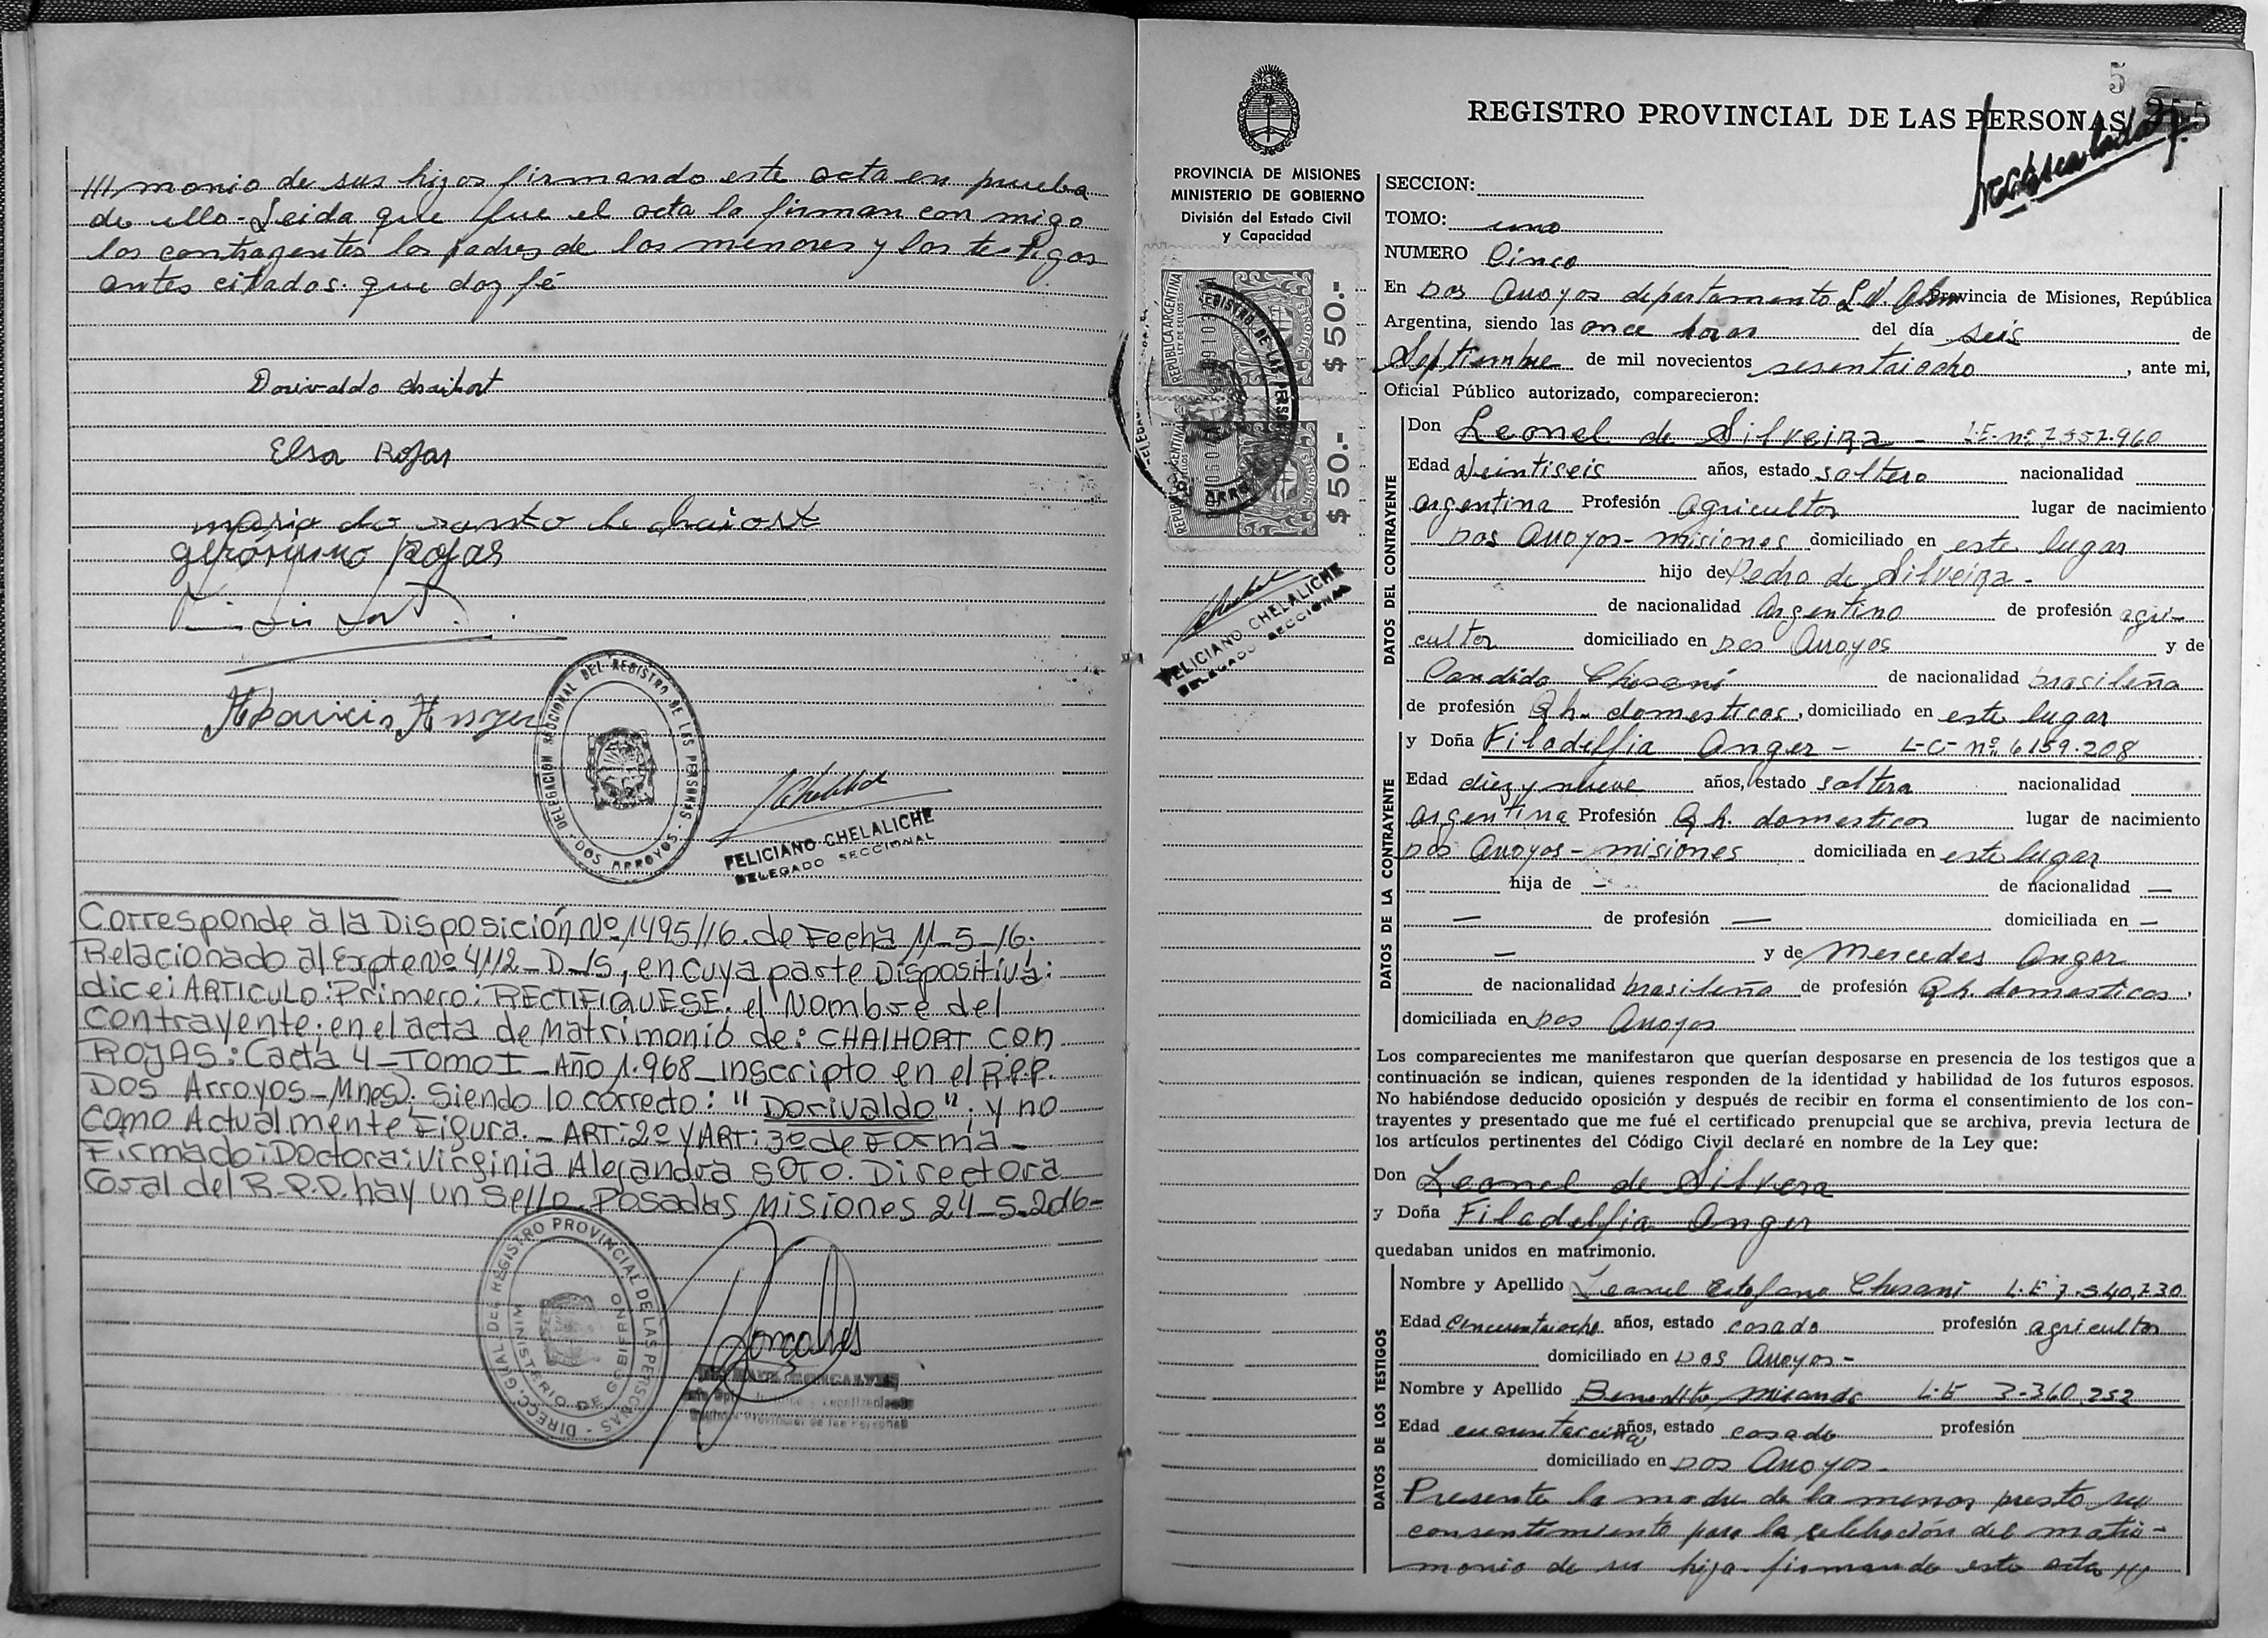 /// monio de sus hijos firmando este acta en prueba
de ello - Leida que fue el acta la firman con migo
los contrayentes los padres de los menores y los testigos
antes citados. que doy fé
Dorivaldo chaihort
Elsa Rojas
maria do santo de chaiort
gerónimo Rojas
FELICIANO CHELALICHE
DELEGADO SECCIONAL
DELEGACION SECCIONAL DEL REGISTRO DE LAS PERSONAS - DOS ARROYOS -
Corresponde a la Disposición Nº 1495/16. de Fecha 11-5-16;
Relacionado al Expte Nº 4112-D-15, en cuya parte Dispositiva:
dice: ARTICULO: Primero: RECTIFIQUESE: el Nombre del
Contrayente; en el acta de Matrimonio de: CHAIHORT con
ROJAS: (acta 4 - TOMO I - Año 1.968 - inscripto en el R.P.P.
DOS Arroyos - Mnes). Siendo lo correcto: "Dorivaldo"; y no
como Actualmente Figura. - ART: 2º Y ART: 3º de Forma -
Firmado: Doctora: Virginia Alejandra SOTO. Directora
Gral del R.P.P. hay un Sello. Posadas Misiones 24-5-2016-
DIRECC. GRAL. DEL REGISTRO PROVINCIAL DE LAS PERSONAS -
MINISTERIO DE GOBIERNO
Registro Provincial de las Personas
5
REGISTRO PROVINCIAL DE LAS PERSONAS
PROVINCIA DE MISIONES
MINISTERIO DE GOBIERNO
División del Estado Civil
y Capacidad
REPUBLICA ARGENTINA
LEY DE SELLOS
MISIONES
$ 50.-
$ 50.-
FELICIANO CHELALICHE
DELEGADO SECCIONAL
SECCION:
TOMO: uno
NUMERO Cinco
En Dos Arroyos departamento L.N. Alem Provincia de Misiones, República
Argentina, siendo las once horas del día seis de
Septiembre de mil novecientos sesentaiocho, ante mi,
Oficial Público autorizado, comparecieron:
DATOS DEL CONTRAYENTE
Don Leonel de Silveira - L.E. nº 7.552.960
Edad veintiseis años, estado soltero nacionalidad
argentina Profesión agricultor lugar de nacimiento
Dos Arroyos - misiones domiciliado en este lugar
hijo de Pedro de Silveira -
de nacionalidad Argentino de profesión agri-
cultor domiciliado en Dos Arroyos y de
Candida Chesani de nacionalidad brasileña
de profesión Q.h. domesticos, domiciliado en este lugar
DATOS DE LA CONTRAYENTE
y Doña Filadelfia Anger - L-C- nº 6159.208
Edad diez y nueve años, estado soltera nacionalidad
argentina Profesión Q.h. domesticos lugar de nacimiento
Dos Arroyos - misiones domiciliada en este lugar
hija de - de nacionalidad -
- de profesión - domiciliada en -
- y de Mercedes Anger
de nacionalidad brasileña de profesión Q.h. domesticos,
domiciliada en Dos Arroyos
Los comparecientes me manifestaron que querían desposarse en presencia de los testigos que a
continuación se indican, quienes responden de la identidad y habilidad de los futuros esposos.
No habiéndose deducido oposición y después de recibir en forma el consentimiento de los con-
trayentes y presentado que me fué el certificado prenupcial que se archiva, previa lectura de
los artículos pertinentes del Código Civil declaré en nombre de la Ley que:
Don Leonel de Silvera
y Doña Filadelfia Anger
quedaban unidos en matrimonio.
DATOS DE LOS TESTIGOS
Nombre y Apellido Leonel Estefano Chesani L.E 7.540.230
Edad cincuentaiocho años, estado casado profesión agricultor
domiciliado en Dos Arroyos -
Nombre y Apellido Benedito Miranda L.E 3-360.252
Edad años, estado casado profesión
domiciliado en Dos Arroyos -
Presente la madre de la menor presto su
consentimiento para la celebración del matri-
monio de su hija firmando este acta ///